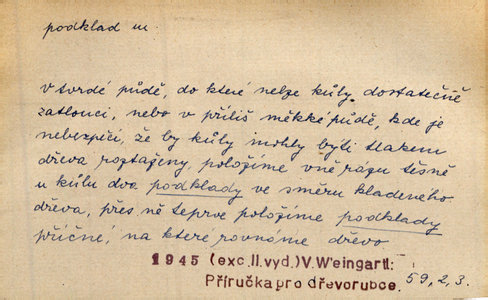 podklad m.
v tvrdé půdě, do které nelze kůly dostatečně
zatlouci, nebo v příliš měkké půdě, kde je
nebezpečí, že by kůly mohly býti tlakem
dřeva roztaženy, položíme vně rázu těsně
u kůlu dva podklady ve směru kladeného
dřeva, přes ně teprve položíme podklady
příčné, na které rovnáme dřevo
1945 (exc.II.vyd.) V.Weingartl:
Příručka pro dřevorubce. 59,2,3.